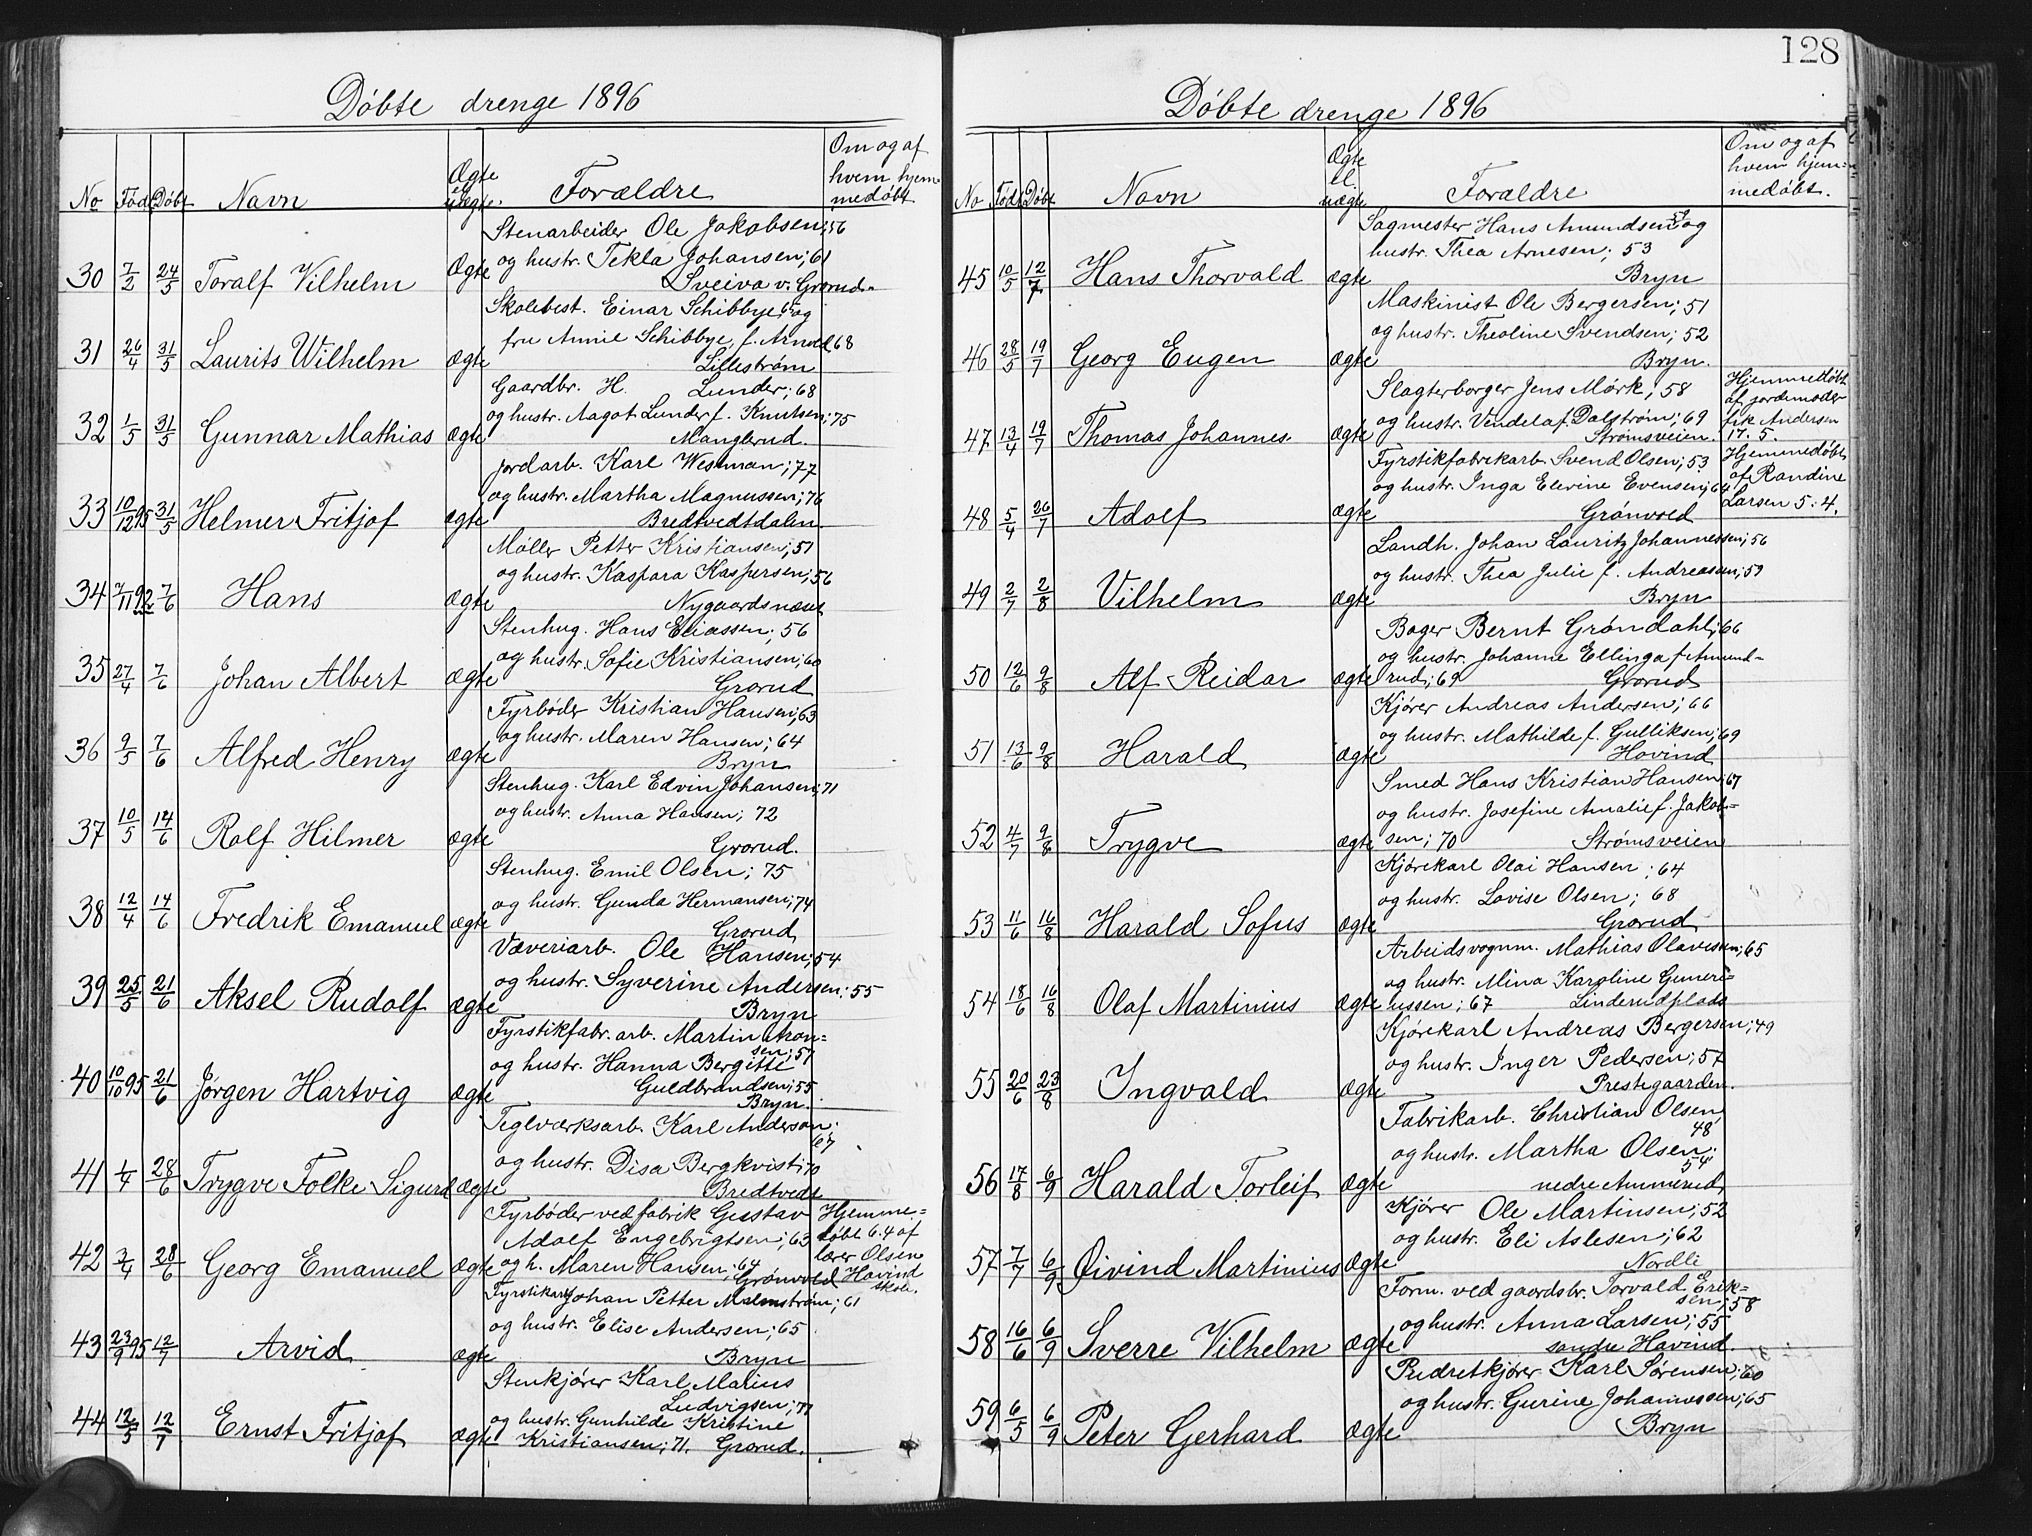 Döbte drenge 1896
No Fød. Døbt Navn Ægte el. uægte. Forældre Om og af hvem hjemmedøbt
Stenarbeider Ole Jakobsen; 56
og hustr. Tekla Johansen; 61
30 7/2 24/5 Toralf Vilhelm Ægte Sveiva v. Grorud.
Skolebest. Einar Schibbye og
fru Annie Schibbye, f. Arnold 68
31 26/4 31/5 Laurits Wilhelm ægte Lillestrøm
Gaardbr. H. Lunder; 68
og hustr. Aagot Lunder f. Knutsen; 75
32 1/5 31/5 Gunnar Mathias ægte Manglerud.
Jordarb. Karl Wesman; 77
og hustr. Martha Magnussen; 76
33 10/12 95 31/5 Helmer Fritjof ægte Bredtvedtdalen
Møller Petter Kristiansen; 51
og hustr. Kaspara Kaspersen; 56
34 7/11 92 7/6 Hans ægte Nygaardsnæset
Stenhug. Hans Eliassen; 56
og hustr. Sofie Kristiansen; 60
35 27/4 7/6 Johan Albert ægte Grorud
Fyrbøder Kristian Hansen; 63
og hustr. Maren Hansen; 64
36 9/5 7/6 Alfred Henry ægte Bryn
Stenhug. Karl Edvin Johansen; 71
og hustr. Anna Hansen; 72
37 10/5 14/6 Rolf Hilmer ægte Grorud.
Stenhug. Emil Olsen; 75
og hustr. Gunda Hermansen; 74
38 12/4 14/6 Fredrik Emanuel ægte Grorud
Væveriarb. Ole Hansen; 54
og hustr. Syverine Andersen; 55
39 25/5 21/6 Aksel Rudolf ægte Bryn
Fyrstikfabr. arb. Martin Aron=
sen; 57
og hustr. Hanna Bergitte
Guldbrandsen; 55
40 10/10 95 21/6 Jørgen Hartvig ægte Bryn.
Teglværksarb. Karl Anderson;
67
og hustr. Disa Bergkvist; 70
41 1/4 28/6 Trygve Folke Sigurd ægte Bredtvedt
Fyrbøder ved fabrik Gustav Hjemme=
Adolf Engebrigtsen; 63 døbt 6.4 af
og h. Maren Hansen; 64 lærer Olsen
42 3/4 28/6 Georg Emanuel ægte Grønvold Hovind skole.
Fyrstikarb. Johan Petter Malmstrøm; 61
og hustr. Elise Andersen; 65
43 23/9 95 12/7 Arvid ægte Bryn
Stenkjører Karl Marius
Ludvigsen; 71
og hustr. Gunhilde Kristine
44 12/5 12/7 Ernst Fritjof ægte Kristiansen; 71. Grorud.
128
Döbte drenge 1896
No Født Døbt Navn Ægte el. uægte Forældre Om og af hvem hjem=medøbt.
Sagmester Hans Amundsen og
hustr. Thea Arnesen; 53
45 10/5 12/7 Hans Thorvald ægte Bryn
Maskinist Ole Bergersen; 51
og hustr. Theoline Svendsen; 52
46 28/5 19/7 Georg Eugen ægte Bryn.
Slagterborger Jens Mörk; 58 Hjemmedøbt
og hustr. Vendela f. Dalstrøm; 69 af jordemoder
47 13/4 19/7 Thomas Johannes ægte Strømsveien. frk Andersen 17. 5.
Fyrstikfabrikarb. Svend Olsen; 53 Hjemmedøbt
og hustr. Inga Elevine Evensen; 64 af Randine
48 5/4 26/7 Adolf ægte Grønvold Larsen 5: 4.
Landh. Johan Lauritz Johannessen; 56
og hustr. Thea Julie f. Andreassen; 59
49 2/7 2/8 Vilhelm ægte Bryn
Bager Bernt Grøndahl; 66
og hustr. Johanne Ellinga f. Amund=
50 12/6 9/8 Alf Reidar ægte rud; 69 Grorud
Kjører Andreas Andersen; 66
og hustr. Mathilde f. Gulliksen; 69
51 13/6 9/8 Harald ægte Hovind
Smed Hans Kristian Hansen; 67
og hustr. Josefine Amalie f. Jakob=
52 4/7 9/8 Trygve ægte sen; 70 Strømsveien
Kjørekarl Olai Hansen; 64
og hustr. Lovise Olsen; 68
53 11/6 16/8 Harald Sofus ægte Grorud
Arbeidsvognm. Mathias Olavesen; 65
og hustr. Mina Karoline Guneri=
54 18/6 16/8 Olaf Martinius ægte ussen; 67 Linderudplads
Kjørekarl Andreas Bergersen; 49
og hustr. Inger Pedersen; 57
55 20/6 23/8 Ingvald ægte Prestegaarden.
Fabrikarb. Christian Olsen
48
og hustr. Martha Olsen;
54
56 17/8 6/9 Harald Torleif ægte nedre Ammerud
Kjører Ole Martinsen; 52
og hustr. Eli Aslesen; 62
57 7/7 6/9 Øivind Martinius ægte Nordli
Form. ved gaardsbr. Torvald Erik=
sen; 58
og hustr. Anna Larsen; 55
58 16/6 6/9 Sverre Vilhelm ægte søndre Hovind.
Pudretkjører Karl Sørensen; 60
og hustr. Gurine Johannessen; 65
59 6/5 6/9 Peter Gerhard ægte Bryn